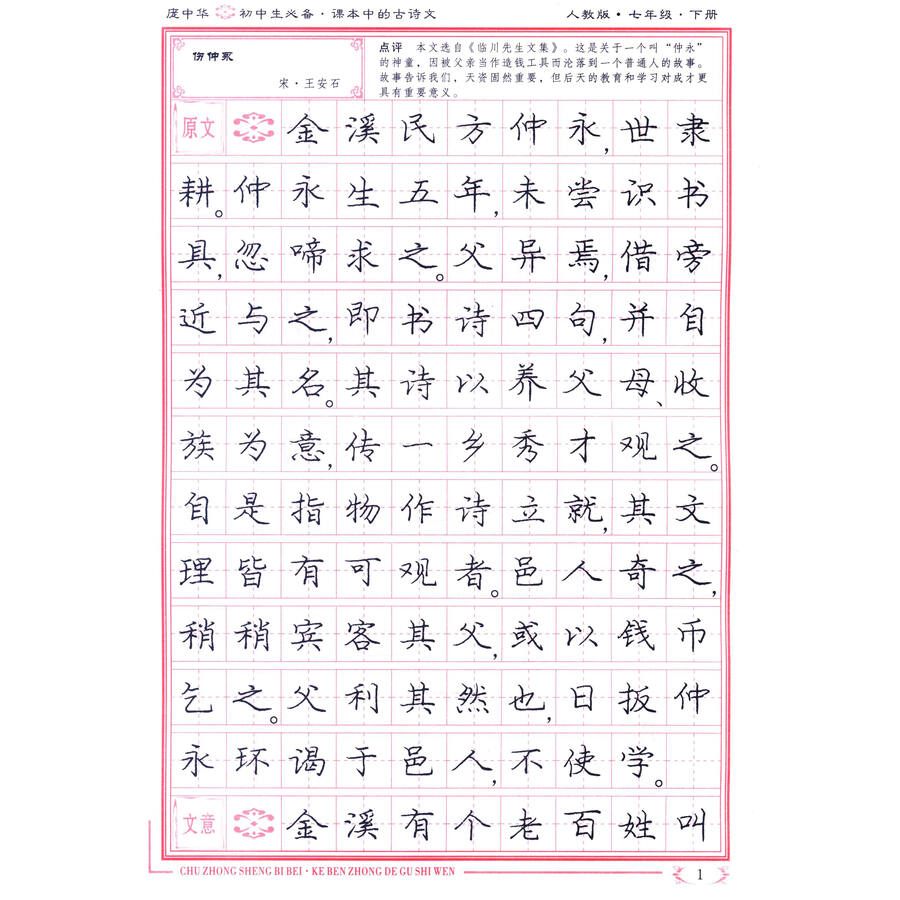 庞中华 初中生必备·课本中的古诗文 人教版·七年级·下册
伤仲永
宋·王安石
点评 本文选自《临川先生文集》。这是关于一个叫“仲永”
的神童，因被父亲当作造钱工具而沦落到一个普通人的故事。
故事告诉我们，天资固然重要，但后天的教育和学习对成才更
具有重要意义。
原文 金溪民方仲永，世隶
耕。仲永生五年，未尝识书
具，忽啼求之。父异焉，借旁
近与之，即书诗四句，并自
为其名。其诗以养父母、收
族为意，传一乡秀才观之。
自是指物作诗立就，其文
理皆有可观者。邑人奇之，
稍稍宾客其父，或以钱币
乞之。父利其然也，日扳仲
永环谒于邑人，不使学。
文意 金溪有个老百姓叫
CHU ZHONG SHENG BI BEI·KE BEN ZHONG DE GU SHI WEN 1